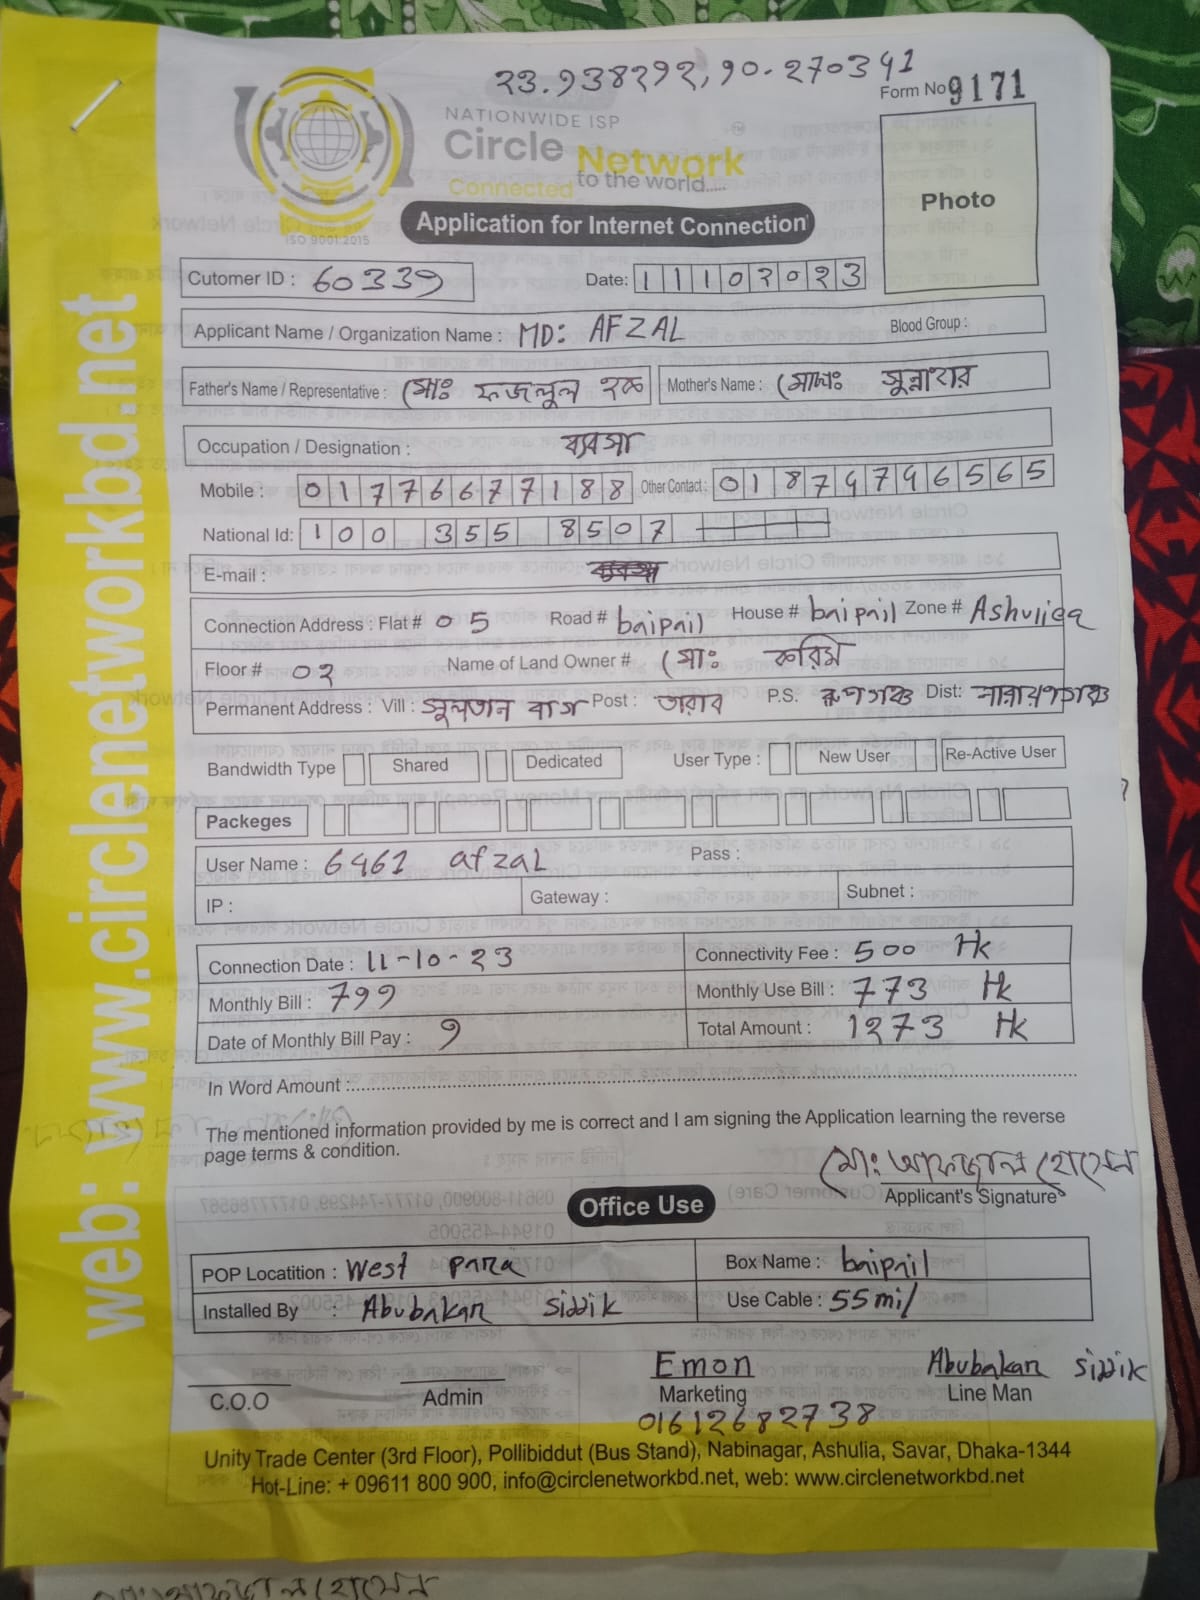 23.938292, 90.270341
Form No 9171
NATIONWIDE ISP
Circle Network
Connected to the world.....
ISO 9001:2015
Photo
Application for Internet Connection
Cutomer ID : 60339 Date: 11102023
Applicant Name / Organization Name : MD: AFZAL Blood Group :
Father's Name / Representative : মোঃ ফজলুল হক Mother's Name : মোসাঃ নুন্নাহার
Occupation / Designation : ব্যবসা
Mobile : 01776677188 Other Contact : 01874796565
National Id: 100 355 8507
E-mail :
Connection Address : Flat # 05 Road # baipail House # baipail Zone # Ashuliea
Floor # 02 Name of Land Owner # মোঃ করিম
Permanent Address : Vill : সুলতান বাগ Post : তারাব P.S. রূপগঞ্জ Dist: নারায়ণগঞ্জ
Bandwidth Type Shared Dedicated User Type : New User Re-Active User
Packeges
User Name : 6461 afzal Pass :
IP : Gateway : Subnet :
Connection Date : 11-10-23 Connectivity Fee : 500 Tk
Monthly Bill : 799 Monthly Use Bill : 773 Tk
Date of Monthly Bill Pay : 9 Total Amount : 1273 Tk
In Word Amount :
The mentioned information provided by me is correct and I am signing the Application learning the reverse
page terms & condition.
মোঃ আফজাল হোসেন
Applicant's Signature
Office Use
POP Locatition : West para Box Name : baipail
Installed By : Abubakar Siddik Use Cable : 55 mil
Emon Abubakar Siddik
C.O.O Admin Marketing Line Man
01612682738
Unity Trade Center (3rd Floor), Pollibiddut (Bus Stand), Nabinagar, Ashulia, Savar, Dhaka-1344
Hot-Line: + 09611 800 900, info@circlenetworkbd.net, web: www.circlenetworkbd.net
web: www.circlenetworkbd.net